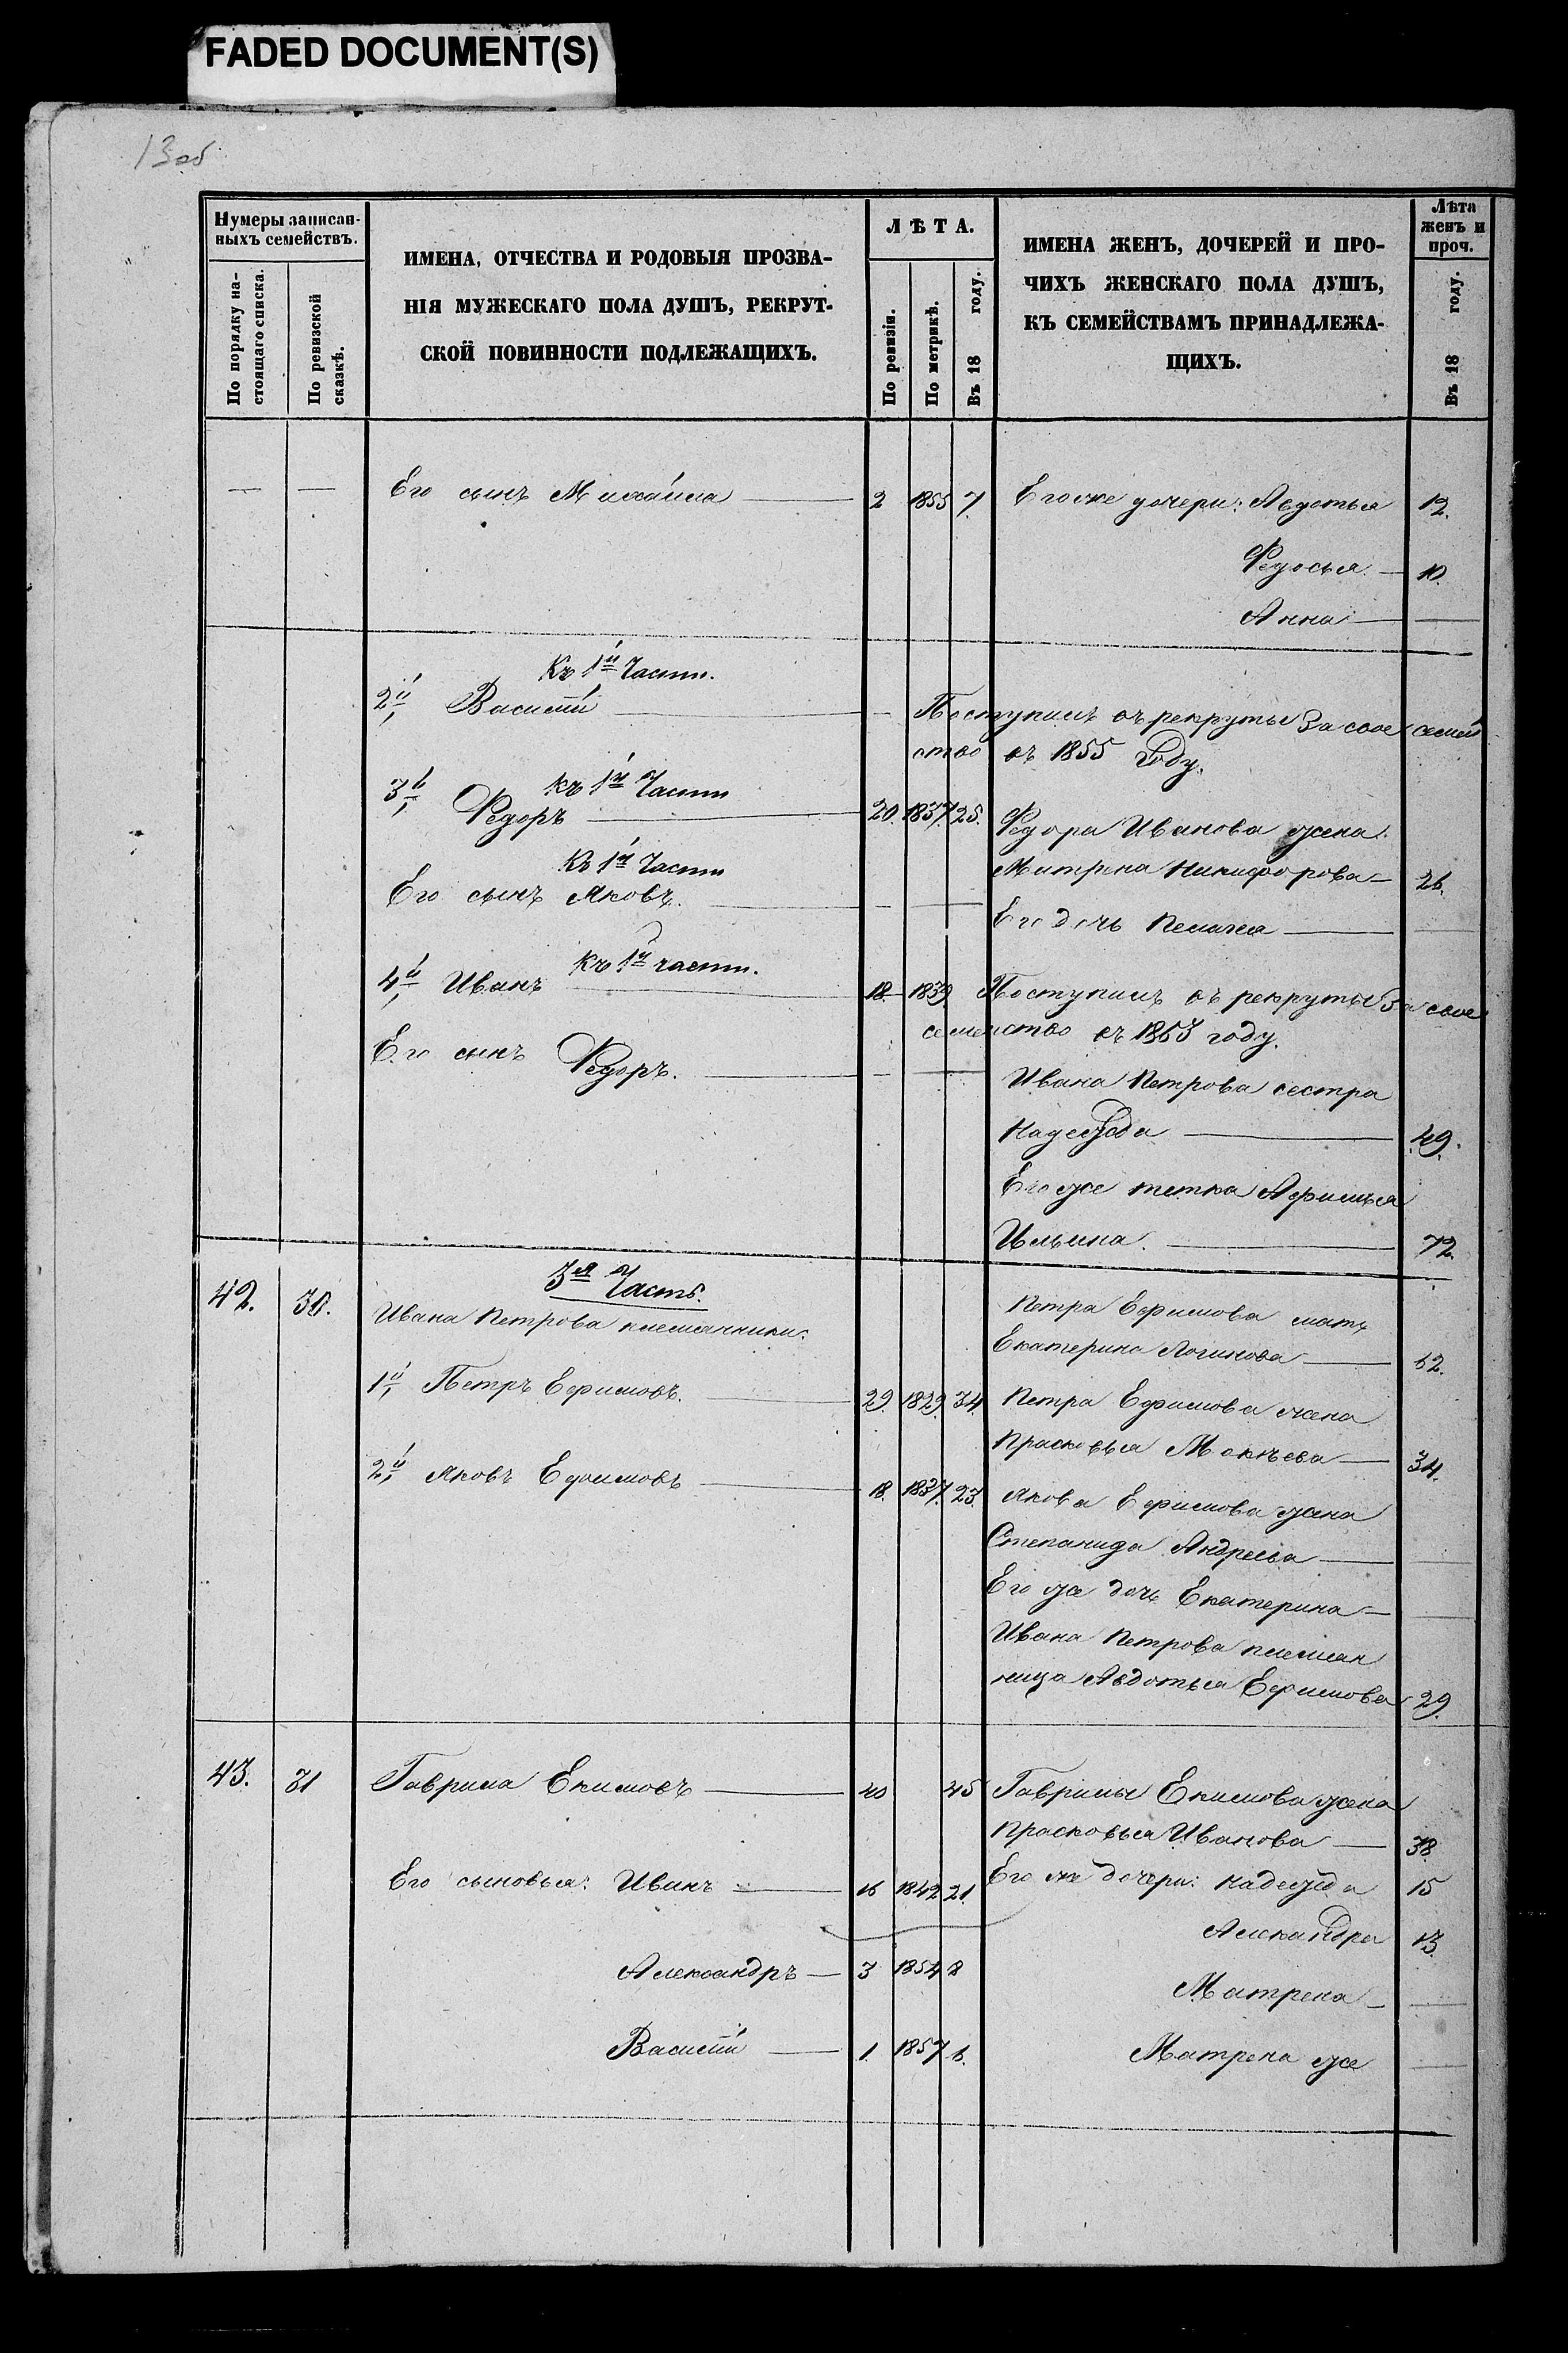 FADED DOCUMENT(S)
13 об
Нумеры записан-
ныхъ семействъ.
По порядку на-
стоящаго списка.
По ревизской
сказкѣ.
ИМЕНА, ОТЧЕСТВА И РОДОВЫЯ ПРОЗВА-
НІЯ МУЖЕСКАГО ПОЛА ДУШЪ, РЕКРУТ-
СКОЙ ПОВИННОСТИ ПОДЛЕЖАЩИХЪ.
ЛѢТА.
По ревизіи.
По метрикѣ.
Въ 18 году.
ИМЕНА ЖЕНЪ, ДОЧЕРЕЙ И ПРО-
ЧИХЪ ЖЕНСКАГО ПОЛА ДУШЪ,
КЪ СЕМЕЙСТВАМЪ ПРИНАДЛЕЖА-
ЩИХЪ.
Лѣта
женъ и
проч.
Въ 18 году.
— — Его сынъ Михаила — 2 1855 7. Его же дочери: Авдотья 12.
Федосья. — 10.
Анна — —
Къ 1й Части.
2й, Василій — Поступилъ въ рекруты за свое семей
ство въ 1855 году.
Къ 1й Части
3й, Федоръ — 20. 1837 25. Федора Иванова жена
Матрена Никифорова — 26.
Къ 1й Части
Его сынъ Яковъ. — — Его дочь Пелагея — —
Къ 1й части.
4й, Иванъ — 18. 1839 Поступилъ въ рекруты за свое
семейство въ 1863 году.
Его сынъ Федоръ. — — —
Ивана Петрова сестра
Надежда — 49.
Его же тетка Афимья
Ильина. — 72.
42. 30. 3я Часть.
Ивана Петрова племянники:
Петра Ефимова мать
Екатерина Логинова — 62.
1й, Петръ Ефимовъ. — 29. 1829. 34. Петра Ефимова жена
Прасковья Мокѣева — 34.
2й, Яковъ Ефимовъ — 18. 1837. 23. Якова Ефимова жена
Степанида Андреева — —
Его же дочь Екатерина — —
Ивана Петрова племян
ница Авдотья Ефимова 29.
43. 31 Гаврила Екимовъ — 40 45 Гаврилы Екимова жена
Прасковья Иванова — 38.
Его сыновья: Иванъ — 16 1842 21. Его же дочери: Надежда 15
Александра 13.
Александръ — 3 1854 8
Матрена — —
Василій — 1. 1857 6. Матрена же —